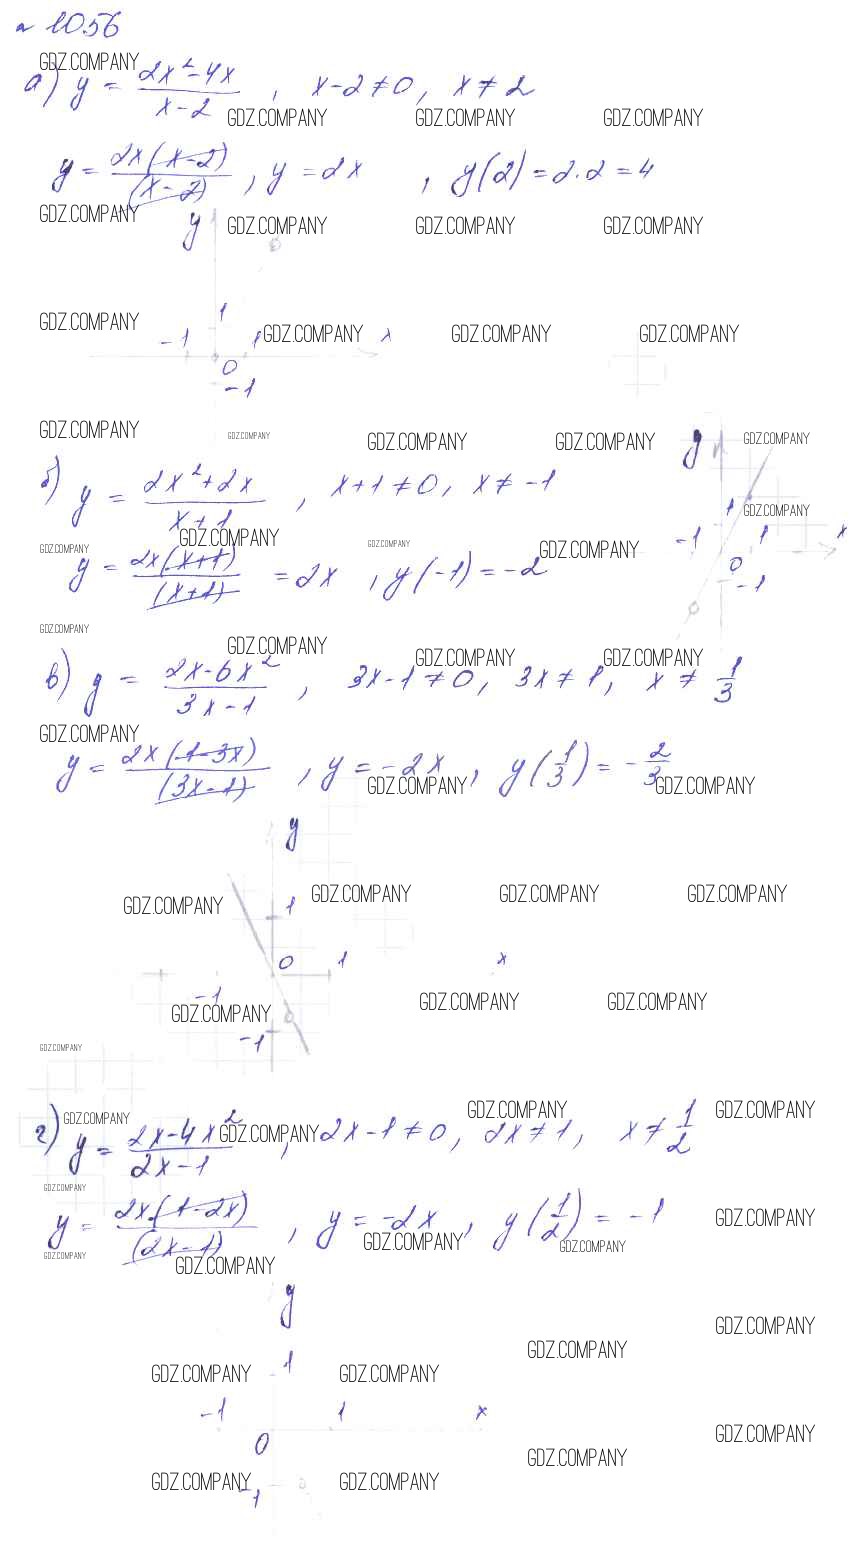 № 1056
GDZ.COMPANY
а) y = (2x² - 4x)/(x - 2) , x - 2 ≠ 0, x ≠ 2
GDZ.COMPANY GDZ.COMPANY GDZ.COMPANY
y = (2x(x - 2))/((x - 2)) , y = 2x , y(2) = 2·2 = 4
GDZ.COMPANY GDZ.COMPANY GDZ.COMPANY GDZ.COMPANY
y
1
GDZ.COMPANY
-1 1 GDZ.COMPANY x GDZ.COMPANY GDZ.COMPANY
0
-1
GDZ.COMPANY GDZ.COMPANY GDZ.COMPANY GDZ.COMPANY GDZ.COMPANY
б) y = (2x² + 2x)/(x + 1) , x + 1 ≠ 0, x ≠ -1
y
GDZ.COMPANY
1
-1 1 x
0
-1
GDZ.COMPANY GDZ.COMPANY GDZ.COMPANY GDZ.COMPANY
y = (2x(x + 1))/((x + 1)) = 2x , y(-1) = -2
GDZ.COMPANY
GDZ.COMPANY GDZ.COMPANY GDZ.COMPANY
в) y = (2x - 6x²)/(3x - 1) , 3x - 1 ≠ 0, 3x ≠ 1, x ≠ 1/3
GDZ.COMPANY
y = (2x(1 - 3x))/((3x - 1)) , y = -2x, y(1/3) = -2/3
GDZ.COMPANY GDZ.COMPANY
y
GDZ.COMPANY GDZ.COMPANY GDZ.COMPANY GDZ.COMPANY
1
0 1 x
-1
GDZ.COMPANY GDZ.COMPANY GDZ.COMPANY
-1
GDZ.COMPANY
GDZ.COMPANY GDZ.COMPANY GDZ.COMPANY
г) y = (2x - 4x²)/(2x - 1) , 2x - 1 ≠ 0, 2x ≠ 1, x ≠ 1/2
GDZ.COMPANY
GDZ.COMPANY
y = (2x·(1 - 2x))/((2x - 1)) , y = -2x , y(1/2) = -1
GDZ.COMPANY
GDZ.COMPANY GDZ.COMPANY GDZ.COMPANY
GDZ.COMPANY
y
GDZ.COMPANY
GDZ.COMPANY
1
GDZ.COMPANY GDZ.COMPANY
-1 1 x
0
GDZ.COMPANY
GDZ.COMPANY
GDZ.COMPANY GDZ.COMPANY
-1